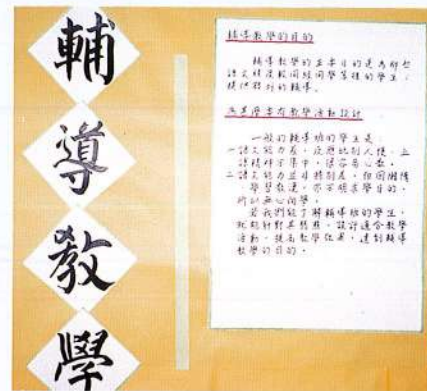 輔
導
教
學
輔導教學的目的
輔導教學的主要目的是為那些
語文程度較同級同學差的學生，
提供特別的輔導。
教學活動設計
一般的輔導班的學生是：
一語文能力差，反應比別人慢，上
課精神不集中，很容易心散。
二語文能力並非特別差，但因
學習散漫，亦不明其學習目的，
所以無心向學。
若我們能了解輔導班的學生，
就能針對其問題，設計適合教學
活動，提高教學效果，達到輔導
教學的目的。